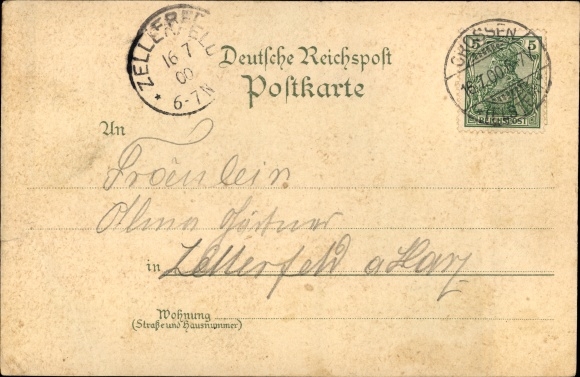 ZELLERFELD
16 7
00
6-7N
Deutsche Reichspost
Postkarte
5
REICHSPOST
16.7.00
An
Fräulein
Alma Gärtner
in Zellerfeld a Harz
Wohnung
(Straße und Hausnummer)